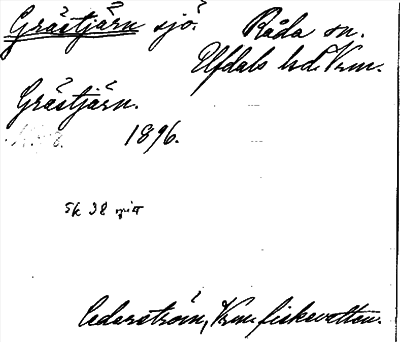 Gråstjärn sjö. Råda sn.
Älfdals hd. Vrm.
Gråstjärn.
1896.
sk 38
Cederström, Vrm. fiskevatten.